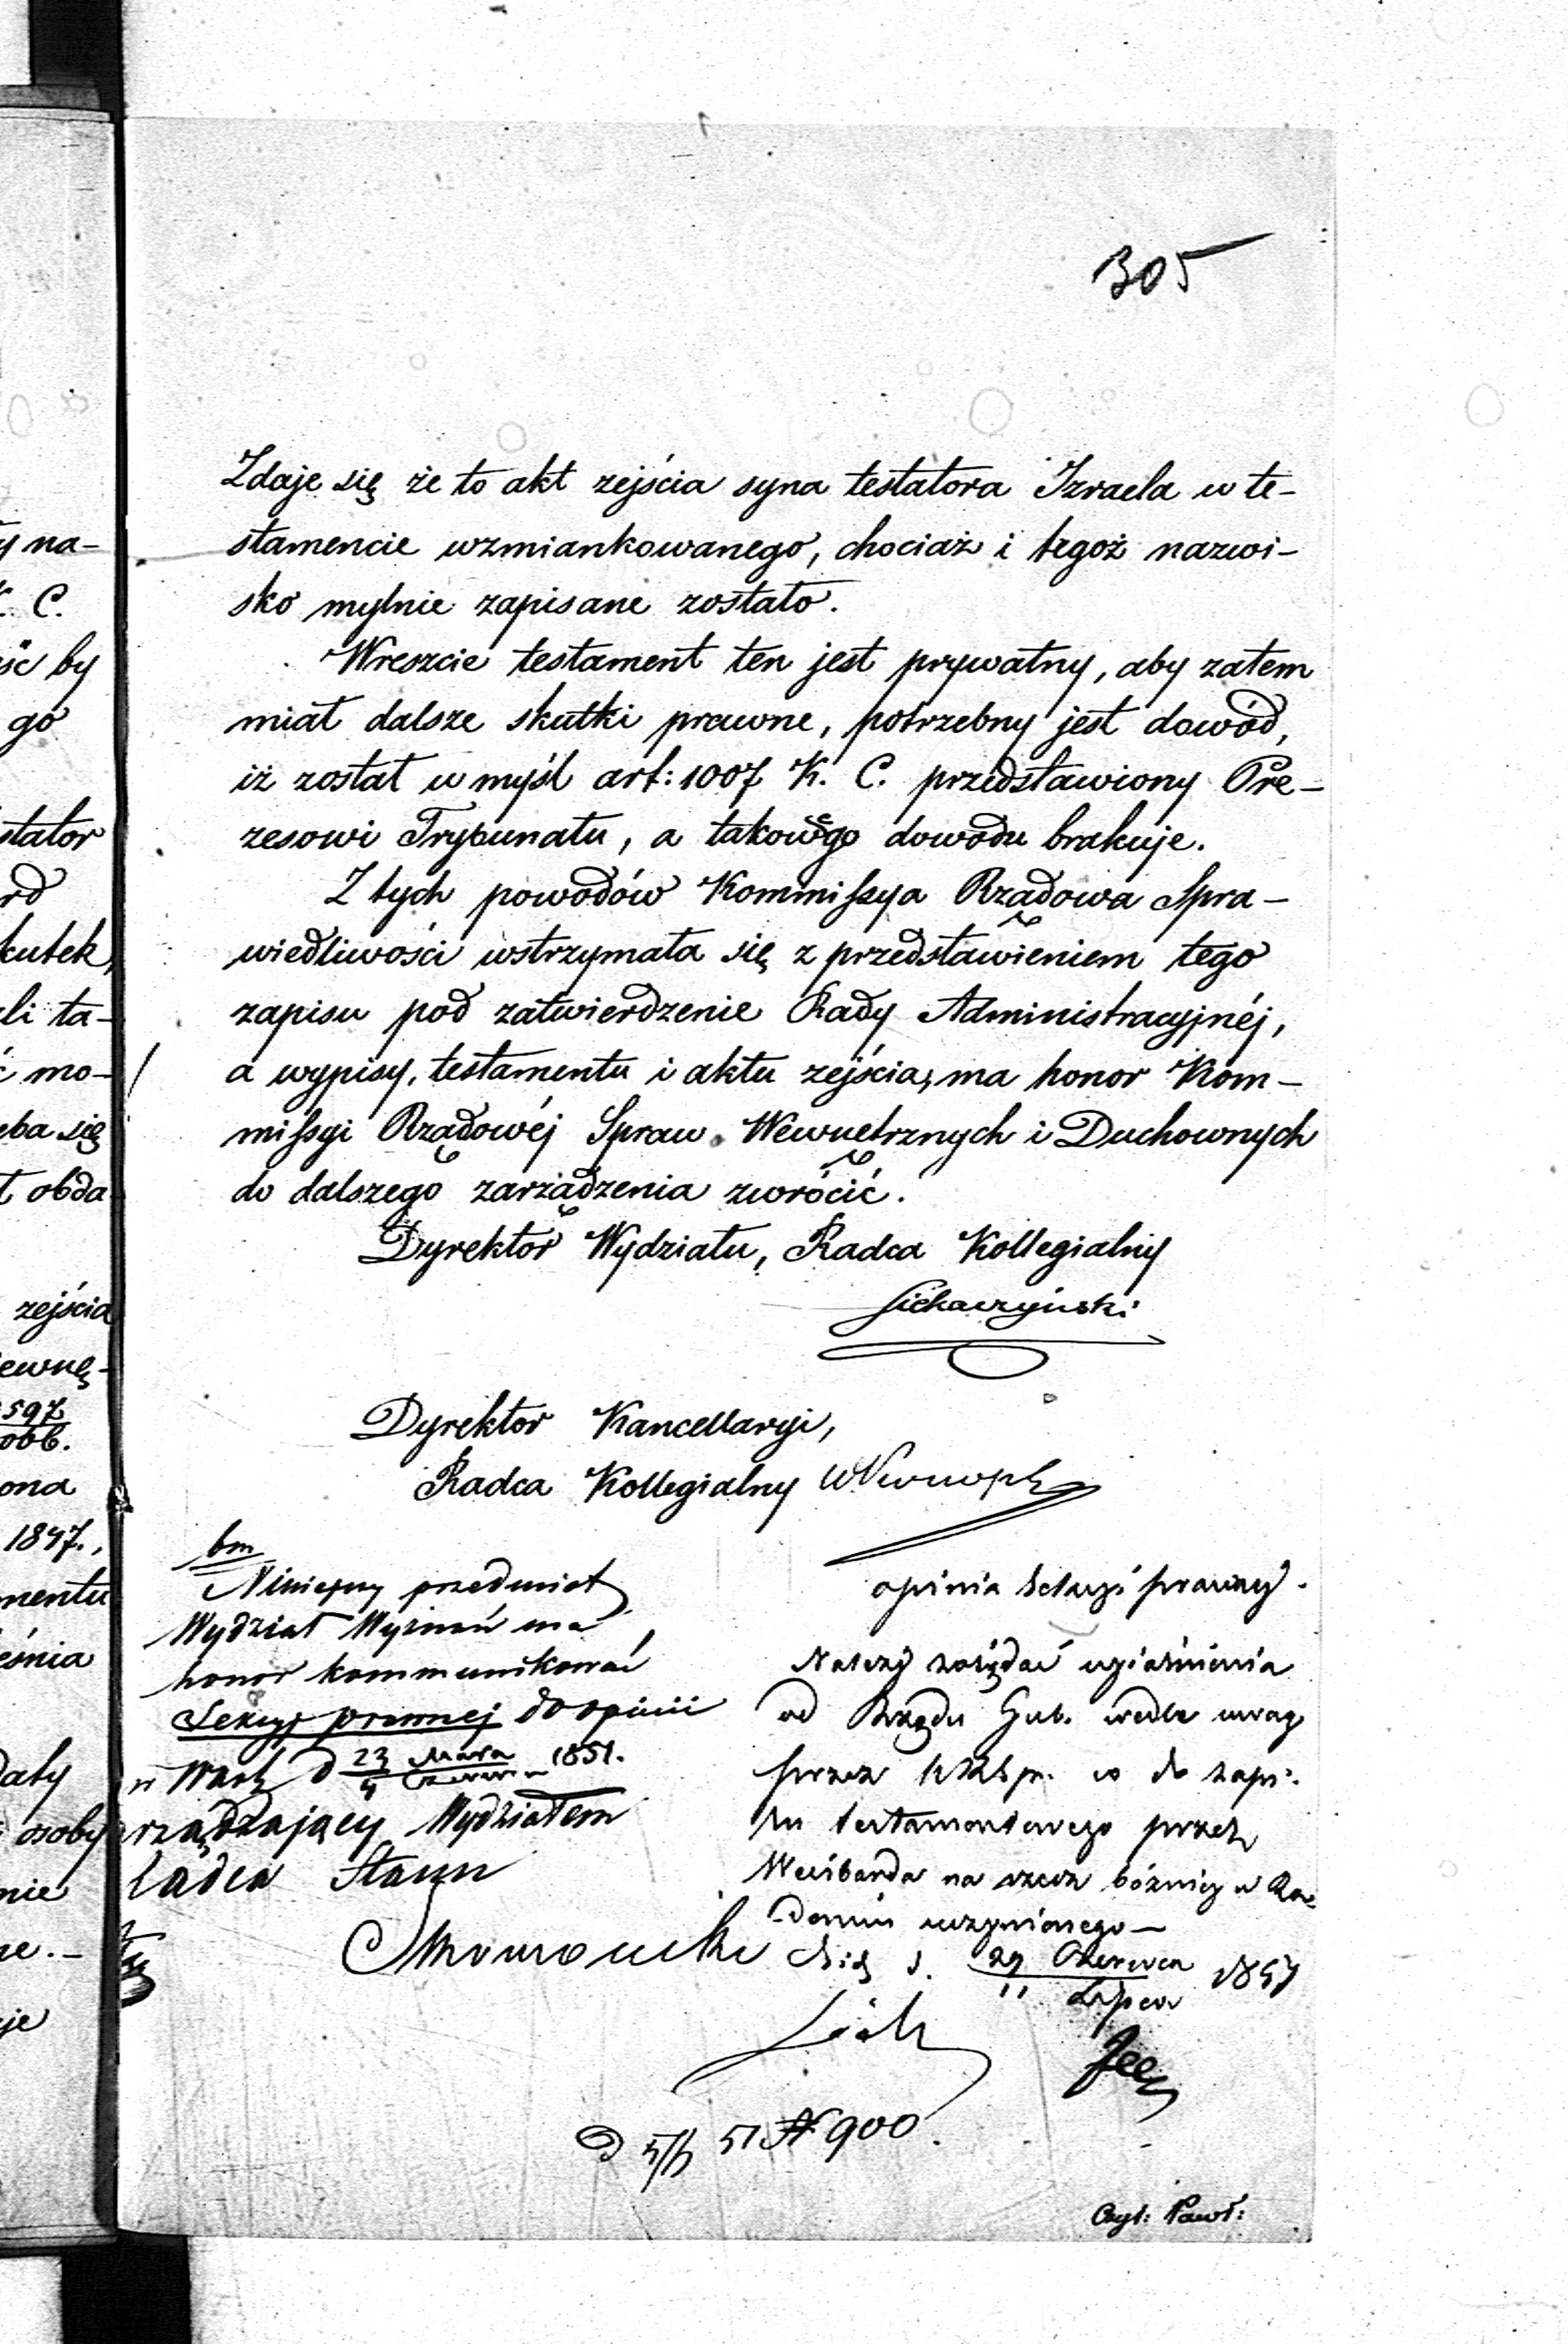 305
Zdaje się że to akt zejścia syna testatora Izraela w te-
stamencie wzmiankowanego, chociaż i tegoż nazwi-
sko mylnie zapisane zostało.
Wreszcie testament ten jest prywatny, aby zatem
miał dalsze skutki prawne, potrzebny jest dowód,
iż został w myśl art: 1007 K. C. przedstawiony Pre-
zesowi Trybunału, a takowego dowodu brakuje.
Z tych powodów Kommissya Rządowa Spra-
wiedliwości wstrzymała się z przedstawieniem tego
zapisu pod zatwierdzenie Rady Administracyjnéj,
a wypisy, testamentu i aktu zejścia, ma honor Kom-
missyi Rządowéj Spraw Wewnętrznych i Duchownych
do dalszego zarządzenia zwrócić.
Dyrektor Wydziału, Radca Kollegialny
Dyrektor Kancellaryi,
Radca Kollegialny
Niniejszy przedmiot
Wydział Wyznań ma
honor kommunikować
Sekcyi prawnej do opinii
w Warsz d 23 Maja / 4 Czerwca 1851.
rządzający Wydziałem
Radca Stanu
opinia Sekcyi prawnej.
Należy zażądać wyjaśnienia
od Rządu Gub. wedle uwag
przez KRSpr. co do zapi-
su testamentowego przez
na rzecz bóżnicy w Ra-
domiu uczynionego —
d. 29 Czerwca / 11 Lipca 1851
51 N 900.
Czyt: Pawł:
y na-
K. C.
ść by
go
stator
rd
kutek,
li ta-
ć mo-
eba się
ł obda-
zejścia
ewnę-
597
ona
1847.,
mentu
eśnia
daty
osoby
nie
je